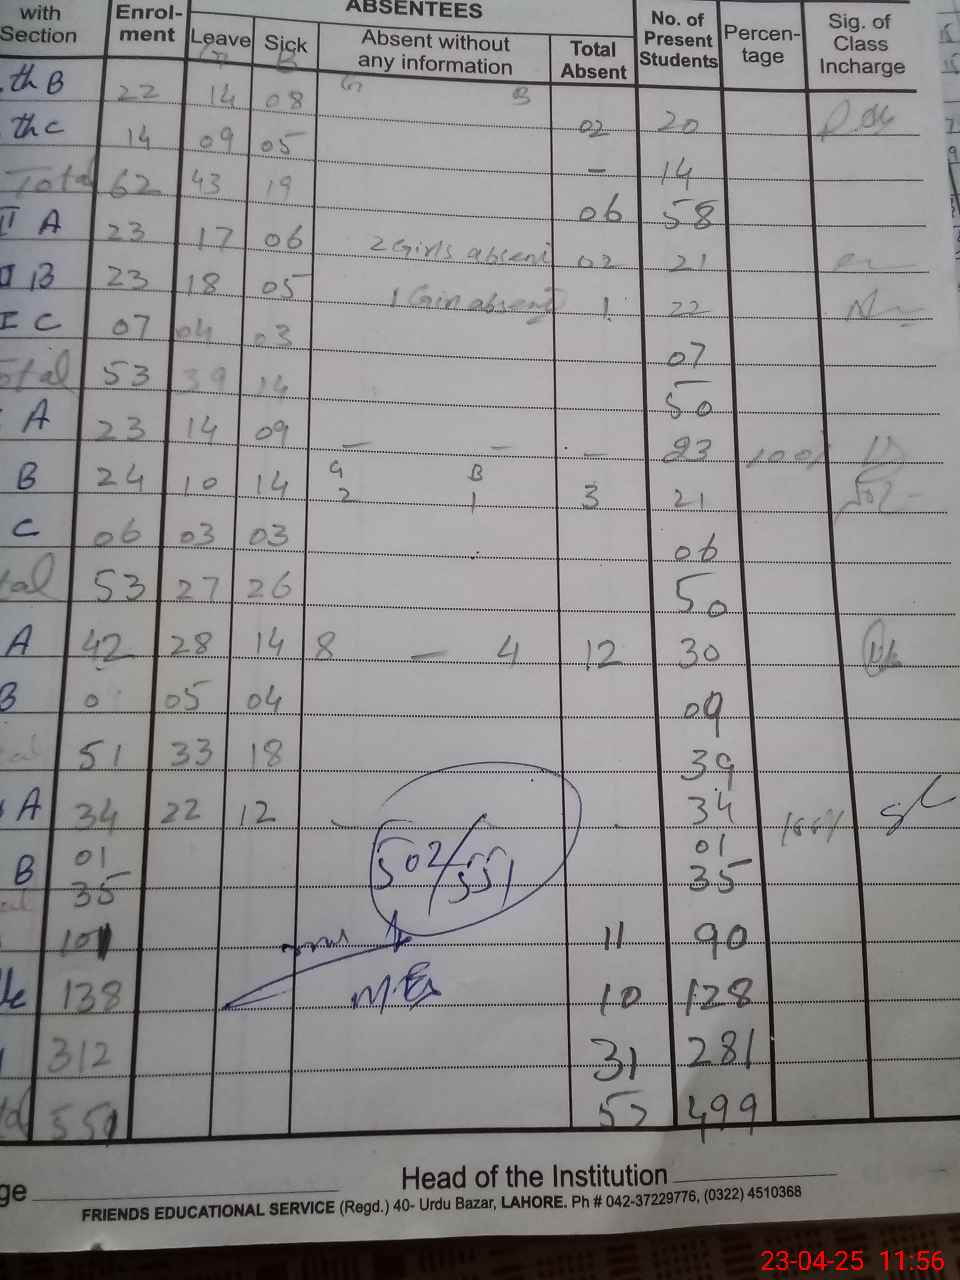 ABSENTEES
with Section Enrol-ment Leave Sick Absent without any information Total Absent No. of Present Students Percen-tage Sig. of Class Incharge
G B G B
th B 22 14 08 02 20
th C 14 09 05 - 14
Total 62 43 19 06 58
II A 23 17 06 2 Girls absent 02 21
B 23 18 05 1 absent 1 22
I C 07 04 03 07
otal 53 39 14 50
A 23 14 09 - - - 23 100%
G B
B 24 10 14 2 1 3 21
C 06 03 03 06
tal 53 27 26 50
A 42 28 14 8 - 4 12 30
B 0 05 04 09
al 51 33 18 39
A 34 22 12 - 34 100%
B 01 01
35 35
502/551
101 11 90
138 10 128
312 31 281
551 52 499
ge Head of the Institution
FRIENDS EDUCATIONAL SERVICE (Regd.) 40- Urdu Bazar, LAHORE. Ph # 042-37229776, (0322) 4510368
23-04-25 11:56